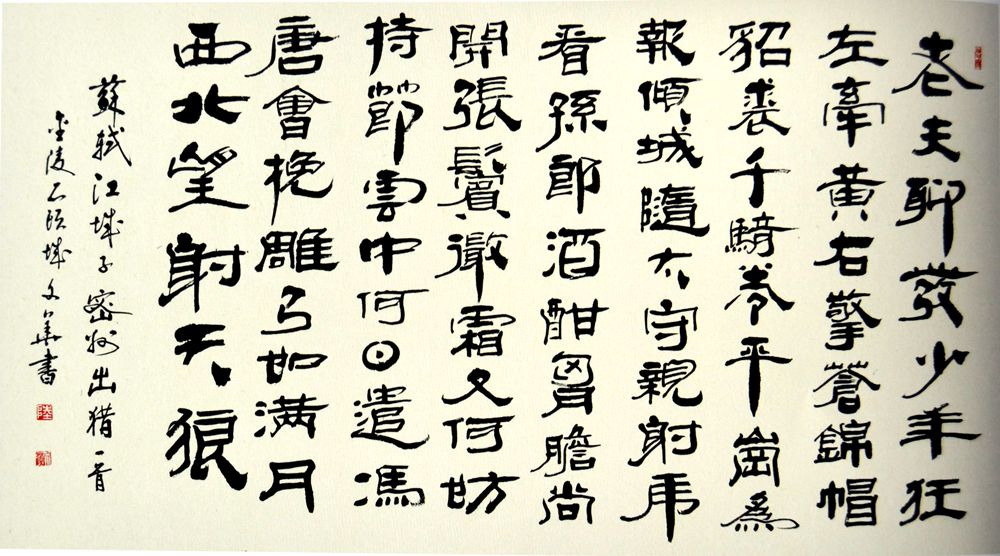 老夫聊發少年狂
左牽黃右擎蒼錦帽
貂裘千騎卷平崗為
報傾城隨太守親射虎
看孫郎酒酣胷膽尚
開張鬢微霜又何妨
持節雲中何日遣馮
唐會挽雕弓如滿月
西北望射天狼
蘇軾江城子密州出猎一首
金陵石頭城文華書